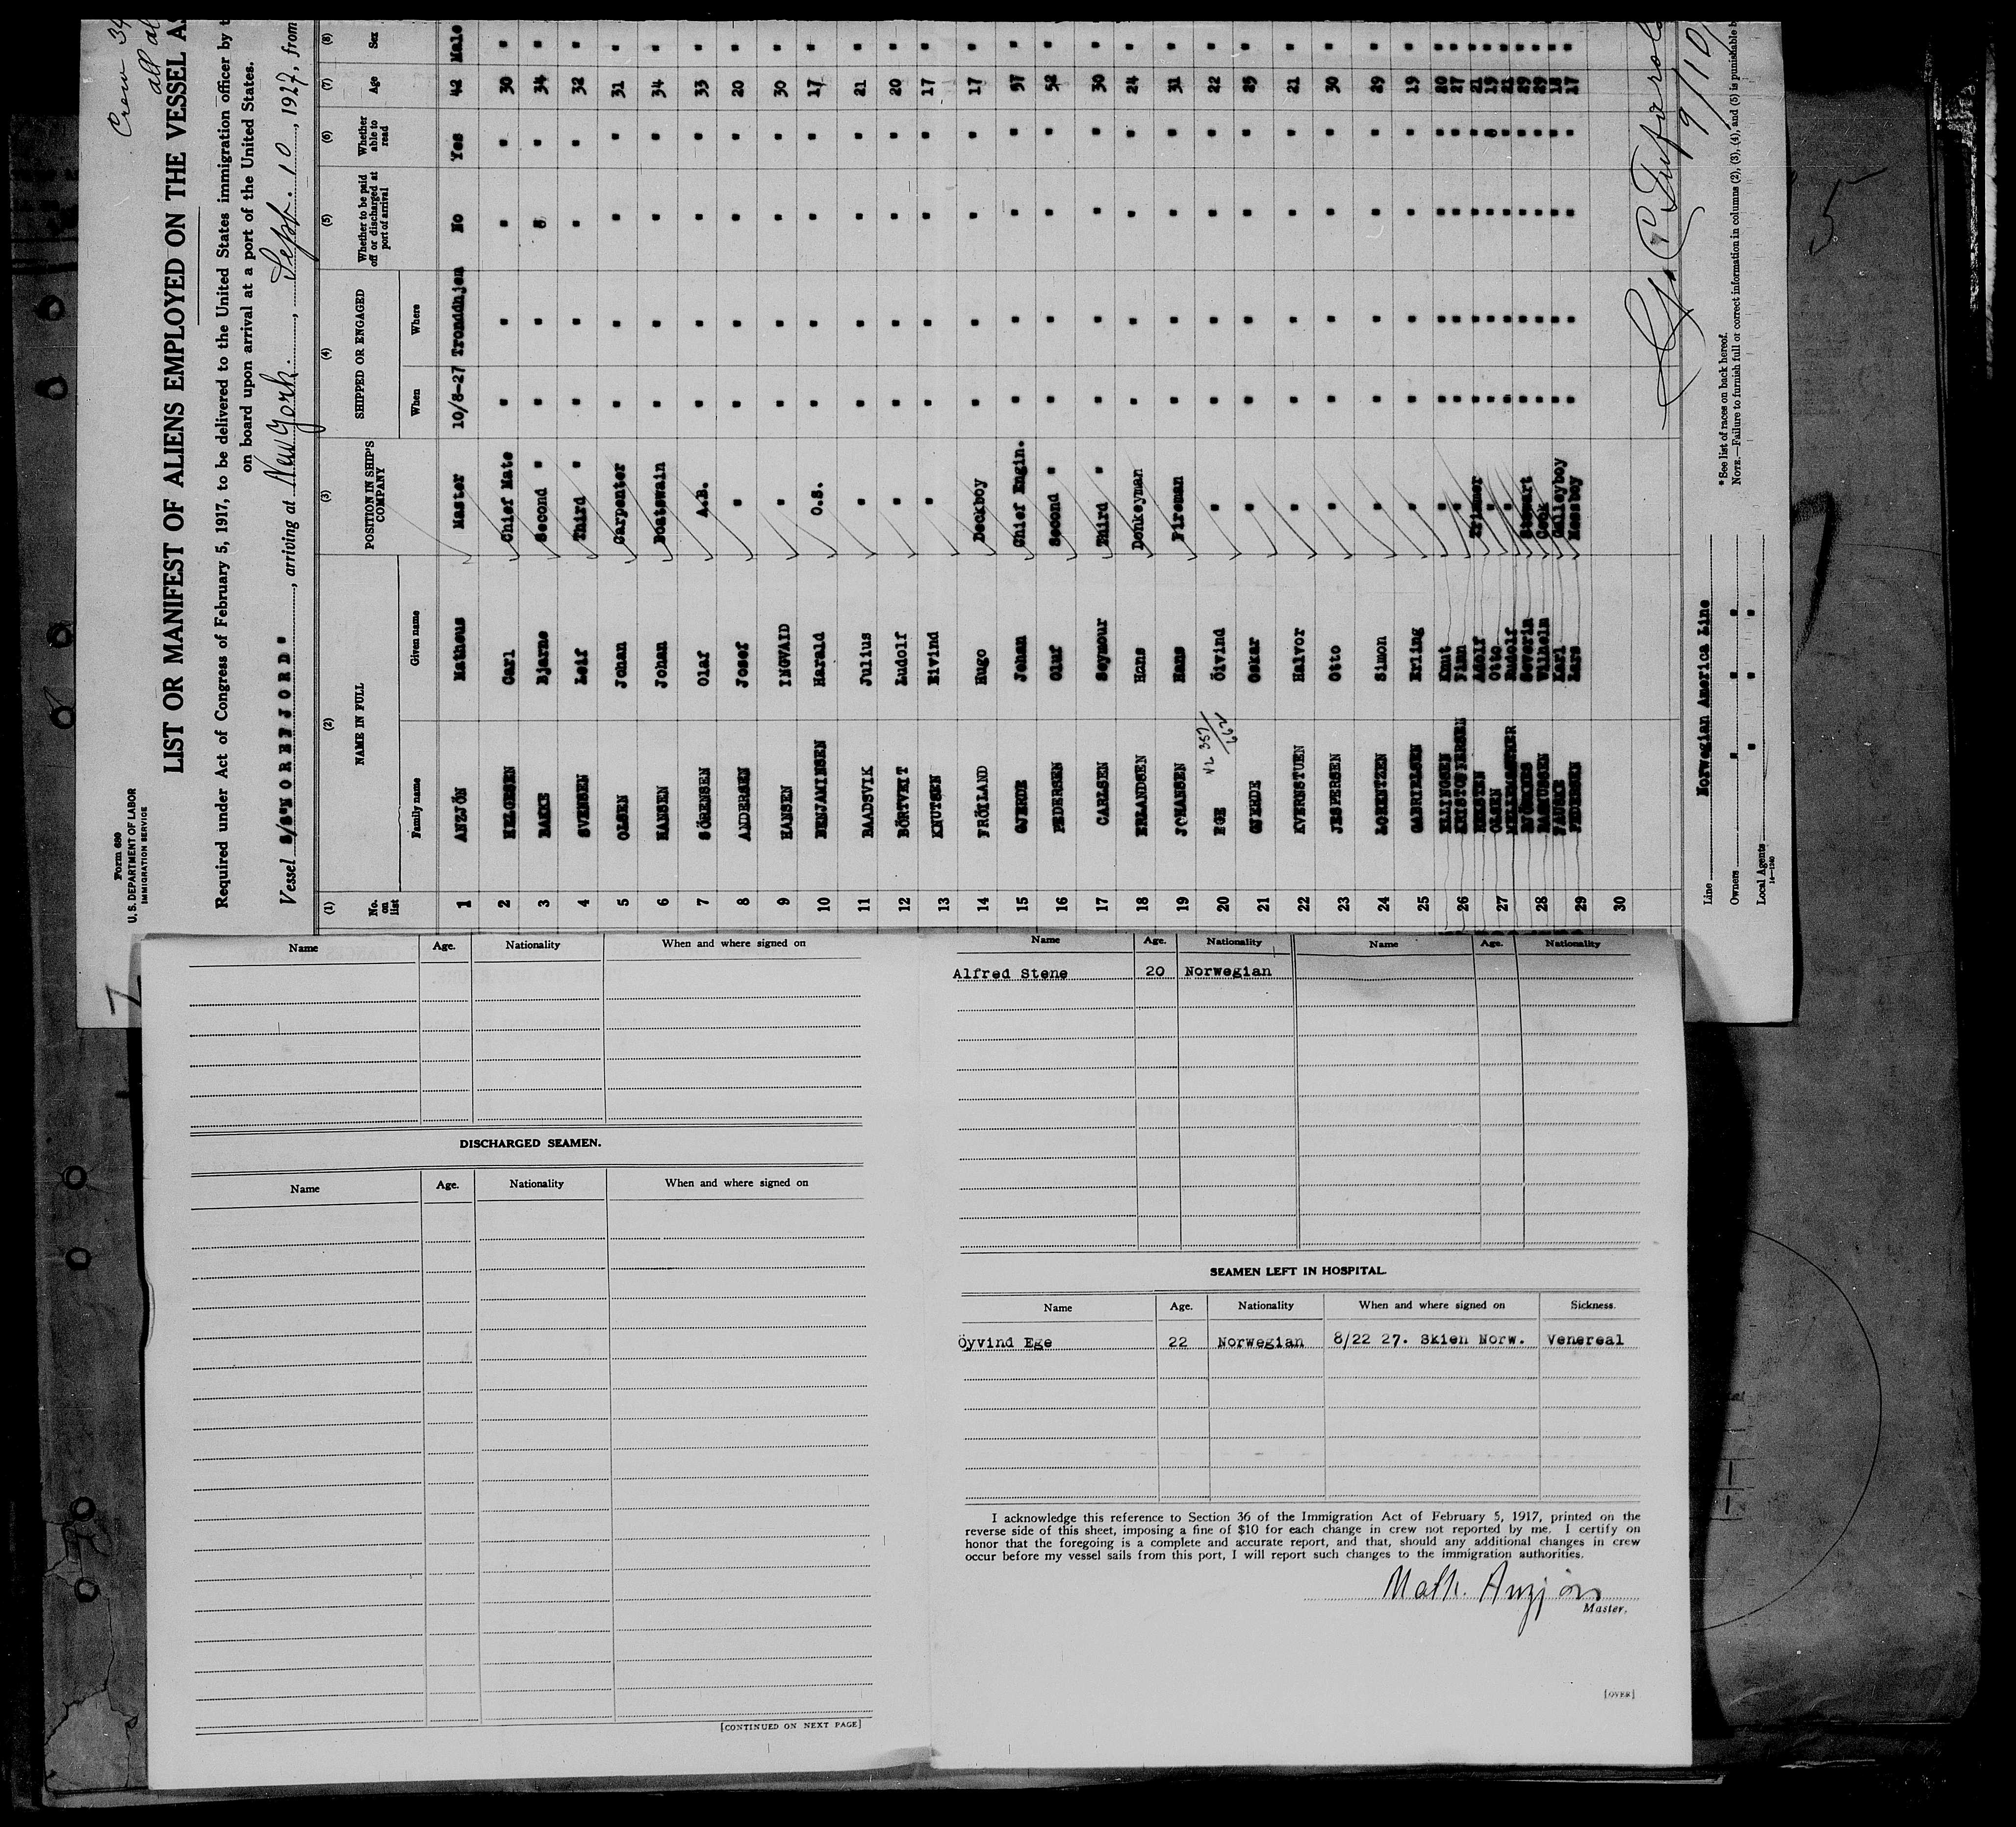 Form 689
U. S. DEPARTMENT OF LABOR
IMMIGRATION SERVICE
Crew 34
all al
LIST OR MANIFEST OF ALIENS EMPLOYED ON THE VESSEL A
Required under Act of Congress of February 5, 1917, to be delivered to the United States immigration officer by t
on board upon arrival at a port of the United States.
Vessel S/S"NOREFJORD", arriving at New York, Sept. 10, 1927, from
(1) (2) (3) (4) (5) (6) (7) (8)
No. on list NAME IN FULL POSITION IN SHIP'S COMPANY SHIPPED OR ENGAGED Whether to be paid off or discharged at port of arrival Whether able to read Age Sex
Family name Given name When Where
1 ANZJÖN Matheus Master 10/8-27 Tronddnjem No Yes 42 Male
2 HELGESEN Carl Chief Mate " " " " 30 "
3 BAKKE Bjarne Second " " " " " 34 "
4 SVENSEN Leif Third " " " " " 32 "
5 OLSEN Johan Carpenter " " " " 31 "
6 HANSEN Johan Boatswain " " " " 34 "
7 SÖRENSEN Olaf A.B. " " " " 33 "
8 ANDERSEN Josef " " " " " 20 "
9 HANSEN INGVALD " " " " " 30 "
10 BENJAMINSEN Harald O.S. " " " " 17 "
11 BAADSVIK Julius " " " " " 21 "
12 BÖRTVEIT Ludolf " " " " " 20 "
13 KNUTSEN Eivind " " " " " 17 "
14 FRÖYLAND Hugo Deckboy " " " " 17 "
15 GJERDE Johan Chief Engin. " " " " 57 "
16 PEDERSEN Oluf Second " " " " " 52 "
17 CARLSEN Seymour Third " " " " " 30 "
18 ERLANDSEN Hans Donkeyman " " " " 24 "
19 JOHANSEN Hans Fireman " " " " 31 "
20 EGE Öivind " " " " " 22 "
21 GJERDE Oskar " " " " " 25 "
22 KVERNSTUEN Halvor " " " " " 21 "
23 JESPERSEN Otto " " " " " 30 "
24 LORENTZEN Simon " " " " " 29 "
25 GABRIELSEN Erling " " " " " 19 "
ELLINGSEN Knut " " " " " 20 "
26 KRISTOFFERSEN Finn " " " " " 27 "
Adolf Trimmer " " " " 21 "
27 OLSEN Otto " " " " " 19 "
Rudolf " " " " " 21 "
Severin Stewart " " " " 29 "
28 RASMUSSEN Wilhelm Cook " " " " 29 "
FAUSKE Karl Galleyboy " " " " 18 "
29 PEDERSEN Lars Messboy " " " " 17 "
30
9/10/
Line Norwegian America Line
Owners " " "
Local Agents " " "
14—1240
*See list of races on back hereof.
NOTE.—Failure to furnish full or correct information in columns (2), (3), (4), and (5) is punishable b
Name Age. Nationality When and where signed on
DISCHARGED SEAMEN.
Name Age. Nationality When and where signed on
[CONTINUED ON NEXT PAGE]
Name Age. Nationality Name Age. Nationality
Alfred Stene 20 Norwegian
SEAMEN LEFT IN HOSPITAL.
Name Age. Nationality When and where signed on Sickness.
Öyvind Ege 22 Norwegian 8/22 27. Skien Norw. Venereal
I acknowledge this reference to Section 36 of the Immigration Act of February 5, 1917, printed on the
reverse side of this sheet, imposing a fine of $10 for each change in crew not reported by me. I certify on
honor that the foregoing is a complete and accurate report, and that, should any additional changes in crew
occur before my vessel sails from this port, I will report such changes to the immigration authorities.
Math. Anzjön
Master.
[OVER]